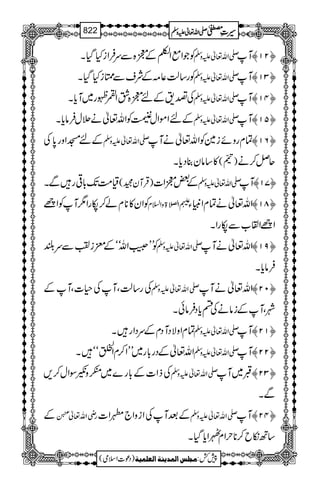 سیرتِ مصطفیٰ صلی اللہ تعالیٰ علیہ وسلم 822
﴿۱۲﴾ آپ صلی اللہ تعالیٰ علیہ وسلم کو جوامع الکلم کے معجزہ سے سرفراز کیا گیا۔
﴿۱۳﴾ آپ صلی اللہ تعالیٰ علیہ وسلم کو رسالت عامہ کے شرف سے ممتاز کیا گیا۔
﴿۱۴﴾ آپ صلی اللہ تعالیٰ علیہ وسلم کی تصدیق کے لئے معجزہ شق القمر ظہور میں آیا۔
﴿۱۵﴾ آپ صلی اللہ تعالیٰ علیہ وسلم کے لئے اموال غنیمت کو اللہ تعالیٰ نے حلال فرمایا۔
﴿۱۶﴾ تمام روئے زمین کو اللہ تعالیٰ نے آپ صلی اللہ تعالیٰ علیہ وسلم کے لئے مسجد اور پاکی
حاصل کرنے (تیمم) کا سامان بنا دیا۔
﴿۱۷﴾ آپ صلی اللہ تعالیٰ علیہ وسلم کے بعض معجزات (قرآن مجید) قیامت تک باقی رہیں گے۔
﴿۱۸﴾ اللہ تعالیٰ نے تمام انبیاء علیہم الصلاۃ والسلام کو ان کا نام لے کر پکارا مگر آپ کو اچھے
اچھے القاب سے پکارا۔
﴿۱۹﴾ اللہ تعالیٰ نے آپ صلی اللہ تعالیٰ علیہ وسلم کو ’’حبیب اللہ‘‘ کے معزز لقب سے سر بلند
فرمایا۔
﴿۲۰﴾ اللہ تعالیٰ نے آپ صلی اللہ تعالیٰ علیہ وسلم کی رسالت، آپ کی حیات، آپ کے
شہر، آپ کے زمانے کی قسم یاد فرمائی۔
﴿۲۱﴾ آپ صلی اللہ تعالیٰ علیہ وسلم تمام اولاد آدم کے سردار ہیں۔
﴿۲۲﴾ آپ صلی اللہ تعالیٰ علیہ وسلم اللہ تعالیٰ کے دربار میں ’’اکرم الخلق‘‘ ہیں۔
﴿۲۳﴾ قبر میں آپ صلی اللہ تعالیٰ علیہ وسلم کی ذات کے بارے میں منکر و نکیر سوال کریں
گے۔
﴿۲۴﴾ آپ صلی اللہ تعالیٰ علیہ وسلم کے بعد آپ کی ازواج مطہرات رضی اللہ تعالیٰ عنہن کے
ساتھ نکاح کرنا حرام ٹھہرایا گیا۔
پیش کش: مجلس المدینۃ العلمیۃ (دعوتِ اسلامی)